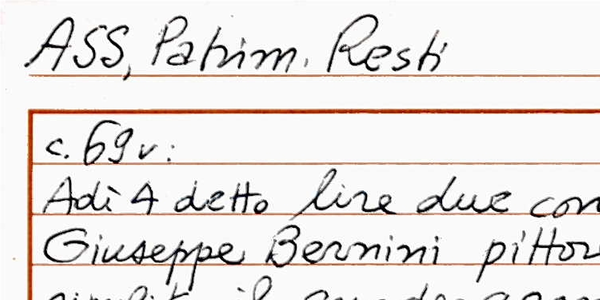 ASS, Patrim. Resti
c. 69v:
Adì 4 detto lire due con
Giuseppe Bernini pittor
il